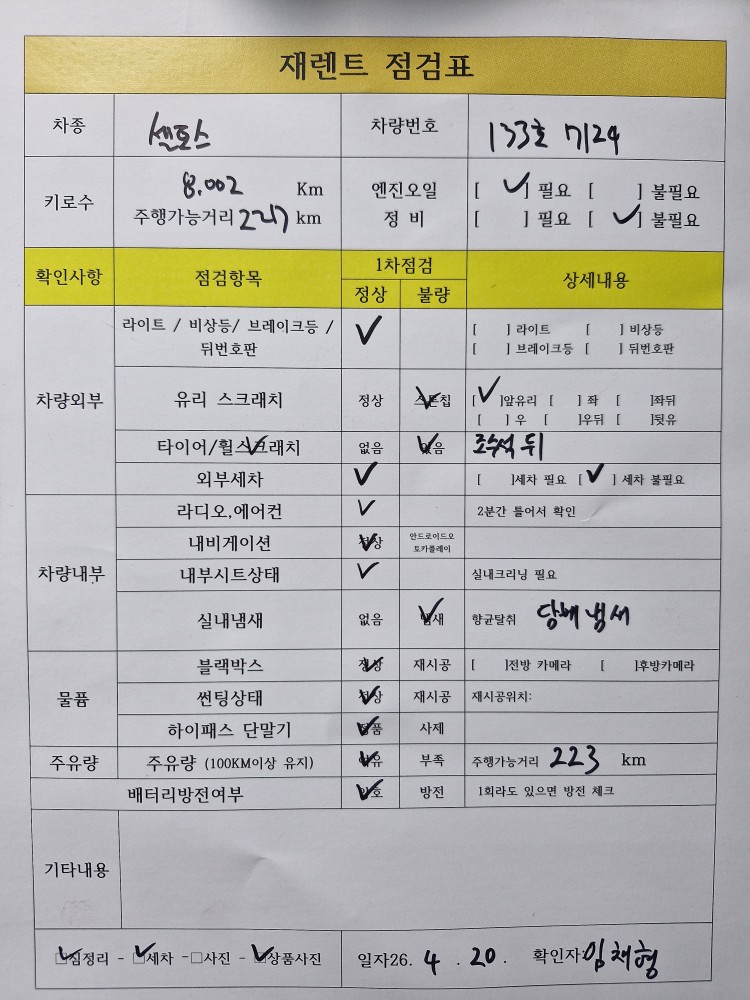 재렌트 점검표
차종 셀토스 차량번호 133호 7124
키로수 8.002 Km 엔진오일 [ ✓ ] 필요 [ ] 불필요
주행가능거리 227 km 정 비 [ ] 필요 [ ✓ ] 불필요
확인사항 점검항목 1차점검 상세내용
정상 불량
차량외부 라이트 / 비상등/ 브레이크등 / 뒤번호판 ✓ [ ] 라이트 [ ] 비상등
[ ] 브레이크등 [ ] 뒤번호판
유리 스크래치 정상 스톤칩 ✓ [ ✓ ]앞유리 [ ] 좌 [ ]좌뒤
[ ] 우 [ ]우뒤 [ ]뒷유
타이어/휠스크래치 ✓ 없음 있음 ✓ 조수석 뒤
외부세차 ✓ [ ]세차 필요 [ ✓ ] 세차 불필요
차량내부 라디오,에어컨 ✓ 2분간 틀어서 확인
내비게이션 정상 ✓ 안드로이드오토카플레이
내부시트상태 ✓ 실내크리닝 필요
실내냄새 없음 냄새 ✓ 향균탈취 담배 냄새
물품 블랙박스 정상 ✓ 재시공 [ ]전방 카메라 [ ]후방카메라
썬팅상태 정상 ✓ 재시공 재시공위치:
하이패스 단말기 정품 ✓ 사제
주유량 주유량 (100KM이상 유지) 여유 ✓ 부족 주행가능거리 223 km
배터리방전여부 양호 ✓ 방전 1회라도 있으면 방전 체크
기타내용
☑짐정리 - ☑세차 -□사진 - ☑상품사진 일자26. 4 . 20 . 확인자: 임채형